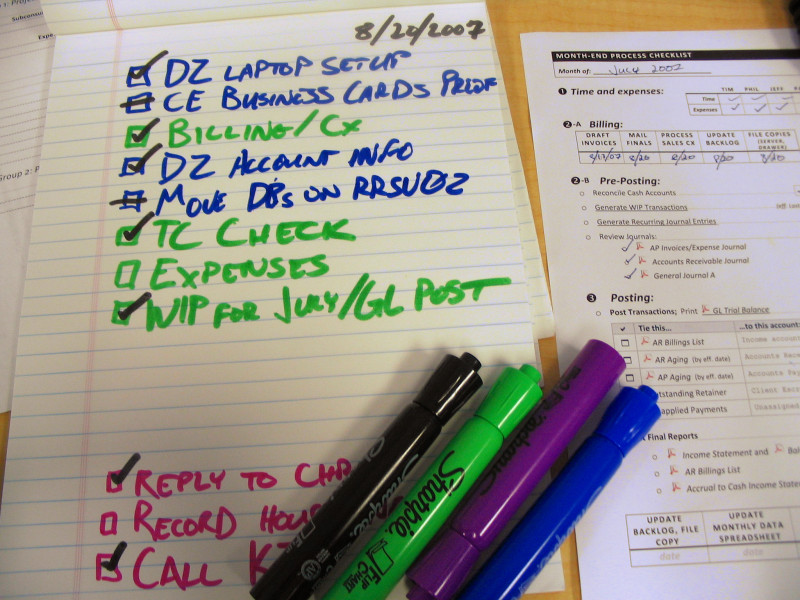 8/20/2007
DZ LAPTOP SETUP
CE BUSINESS CARDS PROOF
BILLING/CX
DZ ACCOUNT INFO
MOVE DBS ON RRSVR2
TC CHECK
EXPENSES
WIP FOR JULY/GL POST
REPLY TO
RECORD
CALL
Sharpie
FLIP CHART
MONTH-END PROCESS CHECKLIST
Month of: July 2007
1 Time and expenses:
TIM PHIL JEFF
Time
Expenses
2-A Billing:
DRAFT INVOICES
MAIL FINALS
PROCESS SALES CX
UPDATE BACKLOG
FILE COPIES (SERVER, DRAWER)
8/17/07 8/20 8/20 8/20 8/20
2-B Pre-Posting:
Reconcile Cash Accounts
Generate WIP Transactions
Generate Recurring Journal Entries
Review Journals:
AP Invoices/Expense Journal
Accounts Receivable Journal
General Journal A
3 Posting:
Post Transactions; Print GL Trial Balance
Tie this... ...to this account
AR Billings List Income
AR Aging (by eff. date) Accounts
AP Aging (by eff. date) Accounts
Retainer Client
Payments
Final Reports
Income Statement and
AR Billings List
Accrual to Cash Income
UPDATE BACKLOG, FILE COPY
UPDATE MONTHLY DATA SPREADSHEET
date date